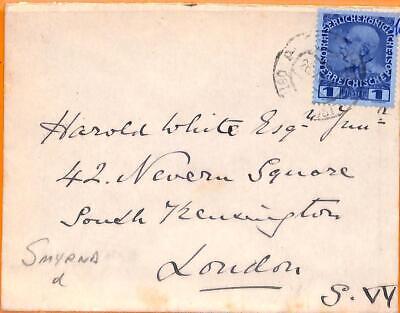 KAISERLICHE KÖNIGLICHE
ÖSTERREICHISCHE POST
1 1
Harold White Esq. Junr
42. Nevern Square
South Kensington
London
S. W
SMYRNA
d